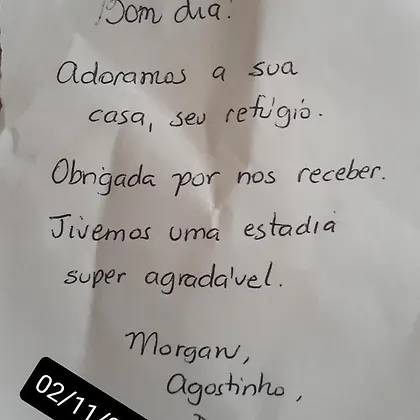 Bom dia!
Adoramos a sua
casa, seu refúgio.
Obrigada por nos receber.
Tivemos uma estadia
super agradável.
Morgan,
Agostinho,
02/11/